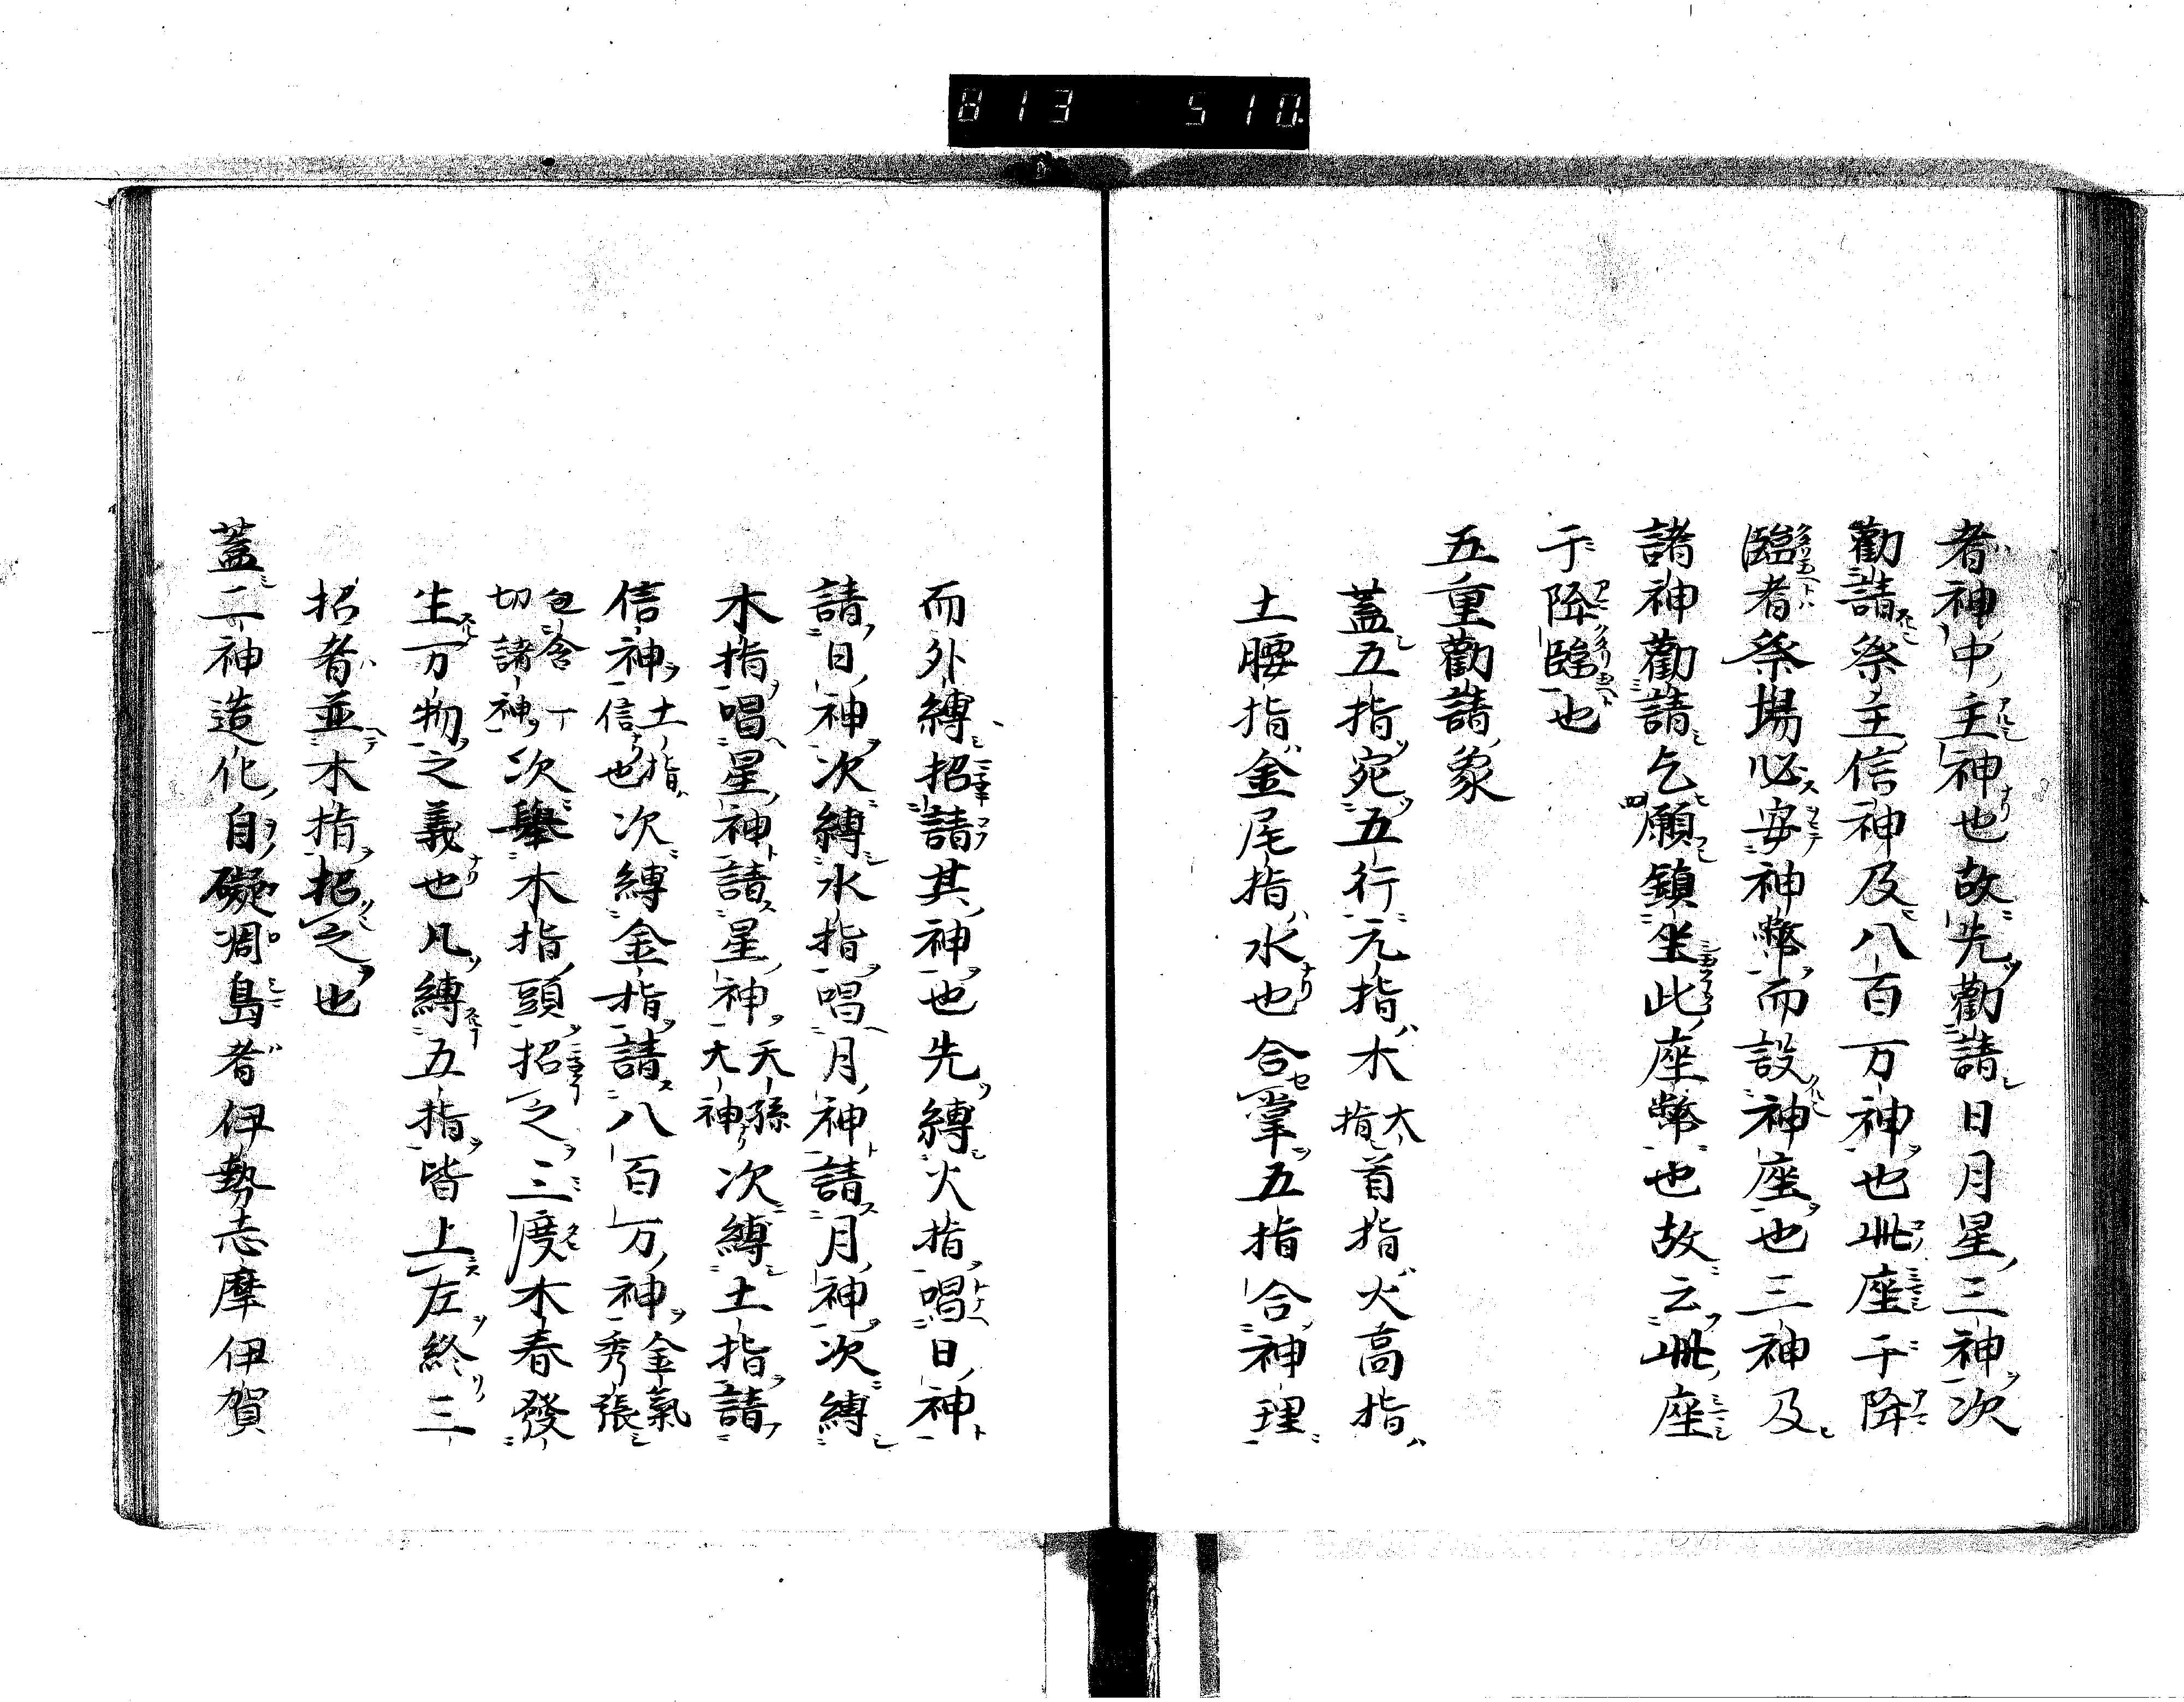 813 510
者神中主神也故先勸請日月星三神次
勸請祭主信神及八百万神也此座于降
臨者祭場必安神幣而設神座也三神及
諸神勸請乞願鎮坐此座幣也故云此座
于降臨也
五重勸請象
蓋五指宛五行元指木大指首指火高指
土腰指金尾指水也合掌五指合神理
而外縛招請其神也先縛火指唱日神
請日神次縛水指唱月神請月神次縛
木指唱星神請星神天孫大神次縛土指請
信神土指信也次縛金指請八百万神金氣秀張
包含一切諸神次舉木指頭招之三度木春發
生万物之義也凡縛五指皆上左終三
招者並木指招之也
蓋二神造化自礙凋島者伊勢志摩伊賀